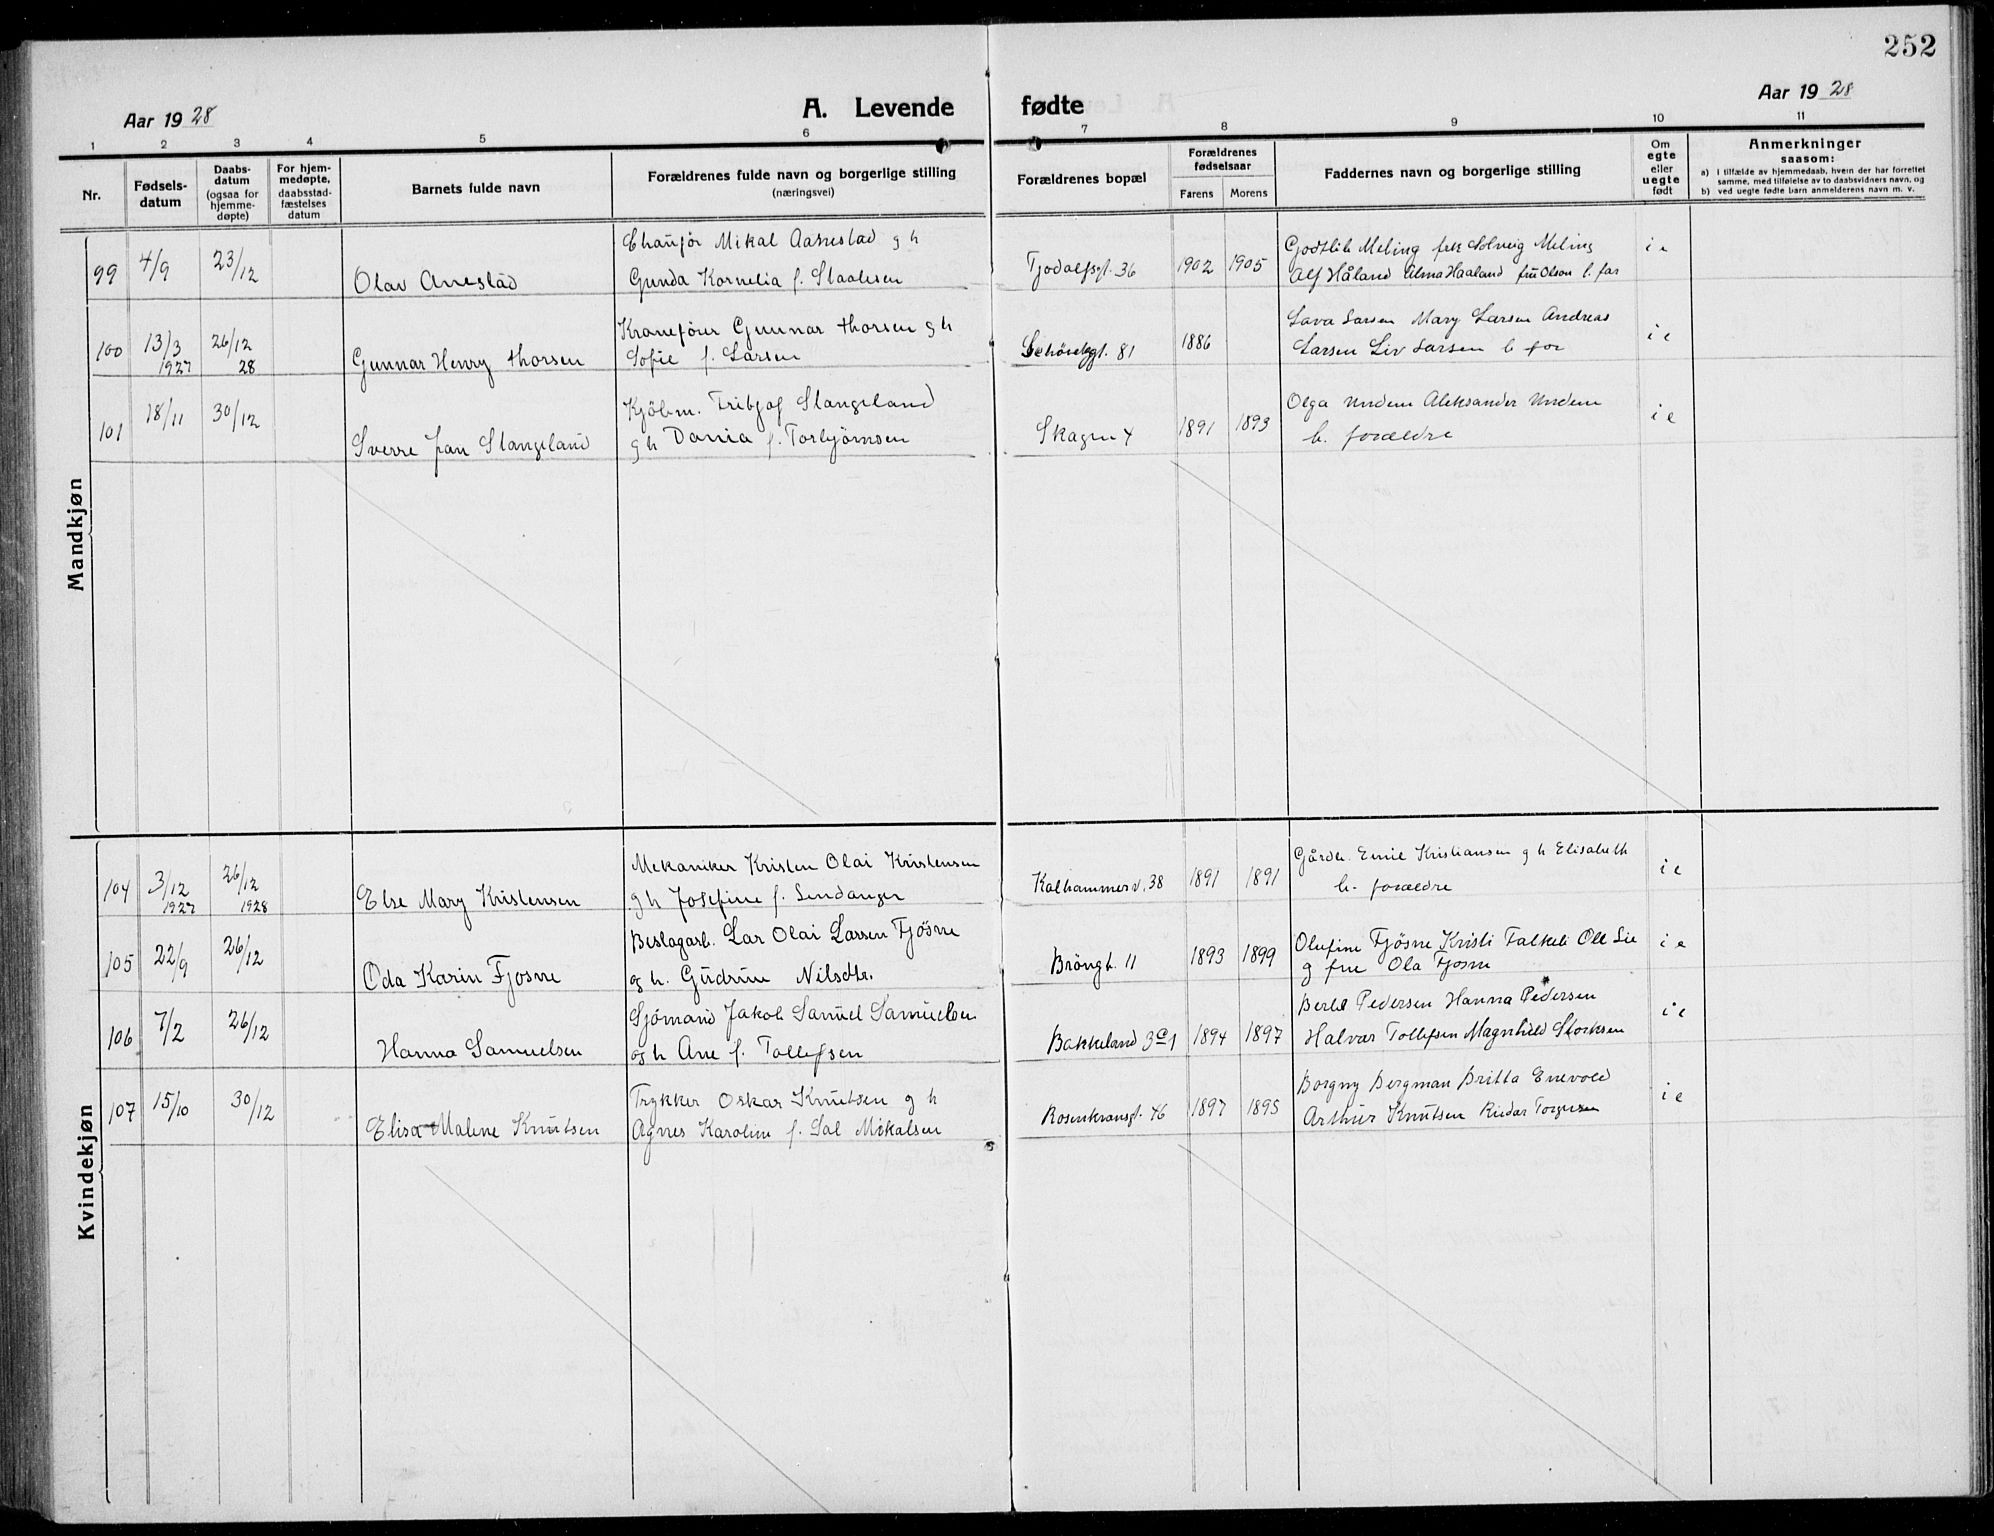 252
Aar 1928
A. Levende fødte
Aar 1928
1 2 3 4 5 6 7 8 9 10 11
Nr.
Fødsels-
datum
Daabs-
datum
(ogsaa for
hjemme-
døpte)
For hjem-
medøpte,
daabsstad-
fæstelses
datum
Barnets fulde navn
Forældrenes fulde navn og borgerlige stilling
(næringsvei)
Forældrenes bopæl
Forældrenes
fødselsaar
Farens Morens
Faddernes navn og borgerlige stilling
Om
egte
eller
uegte
født
Anmerkninger
saasom:
a) i tilfælde av hjemmedaab, hvem der har forrettet
samme, med tilføielse av to daabsvidners navn, og
b) ved uegte fødte barn anmelderens navn m. v.
Mandkjøn
99 4/9 23/12 Olav Anestad
Chauffør Mikal Aanestad g h
Gunda Kornelia f. Staalesen
Tjodolfsgt. 36 1902 1905
Godtlib Meling frk Solveig Meling
Alf Håland Alma Haaland fru Olson b. far
i e
100 13/3 1927 26/12 28 Gunnar Henry Thorsen
Kranefører Gunnar Thorsen g h
Sofie f. Larsen
81 1886
Lava Larsen Mary Larsen Andreas
Larsen Liv Larsen b for
i e
101 18/11 30/12 Sverre Jan Stangeland
Kjöbm. Tribjof Stangeland
g h Dania f. Torbjørnsen
Skagen 4 1891 1893
Olga Undem Aleksander Undem
b. forældre
i e
Kvindekjøn
104 3/12 1927 26/12 1928 Else Mary Kristensen
Mekaniker Kristen Olai Kristensen
g h Josefine f. Lindanger
Kalhammersv. 38 1891 1891
Gårdb. Emie Kristiansen g h Elisabeth
b. forældre
i e
105 22/9 26/12 Oda Karin Fjosne
Beslagarb. Lar Olai Larsen Fjösne
og h. Gudrun Nilsdtr.
Bröngt. 11 1893 1899
Olufine Fjösne Kristi Falkeb Ole Lie
g frue Ola Fjosne
i e
106 7/2 26/12 Hanna Samuelsen
Sjömand Jakob Samuel Samuelsen
og h Ane f. Tollefsen
Bakkeland 3 c 1 1894 1897
Berte Pedersen Hanna Pedersen
Halvar Tollefsen Magnhild Storksen
i e
107 15/10 30/12 Elisa Malene Knutsen
Trykker Oskar Knutsen g h
Agnes Karoline f. Sal Mikalsen
Rosenkransgt. 46 1897 1895
Borgny Bergman Britta Enevold
Arthur Knutsen Reidar Torgersen
i e